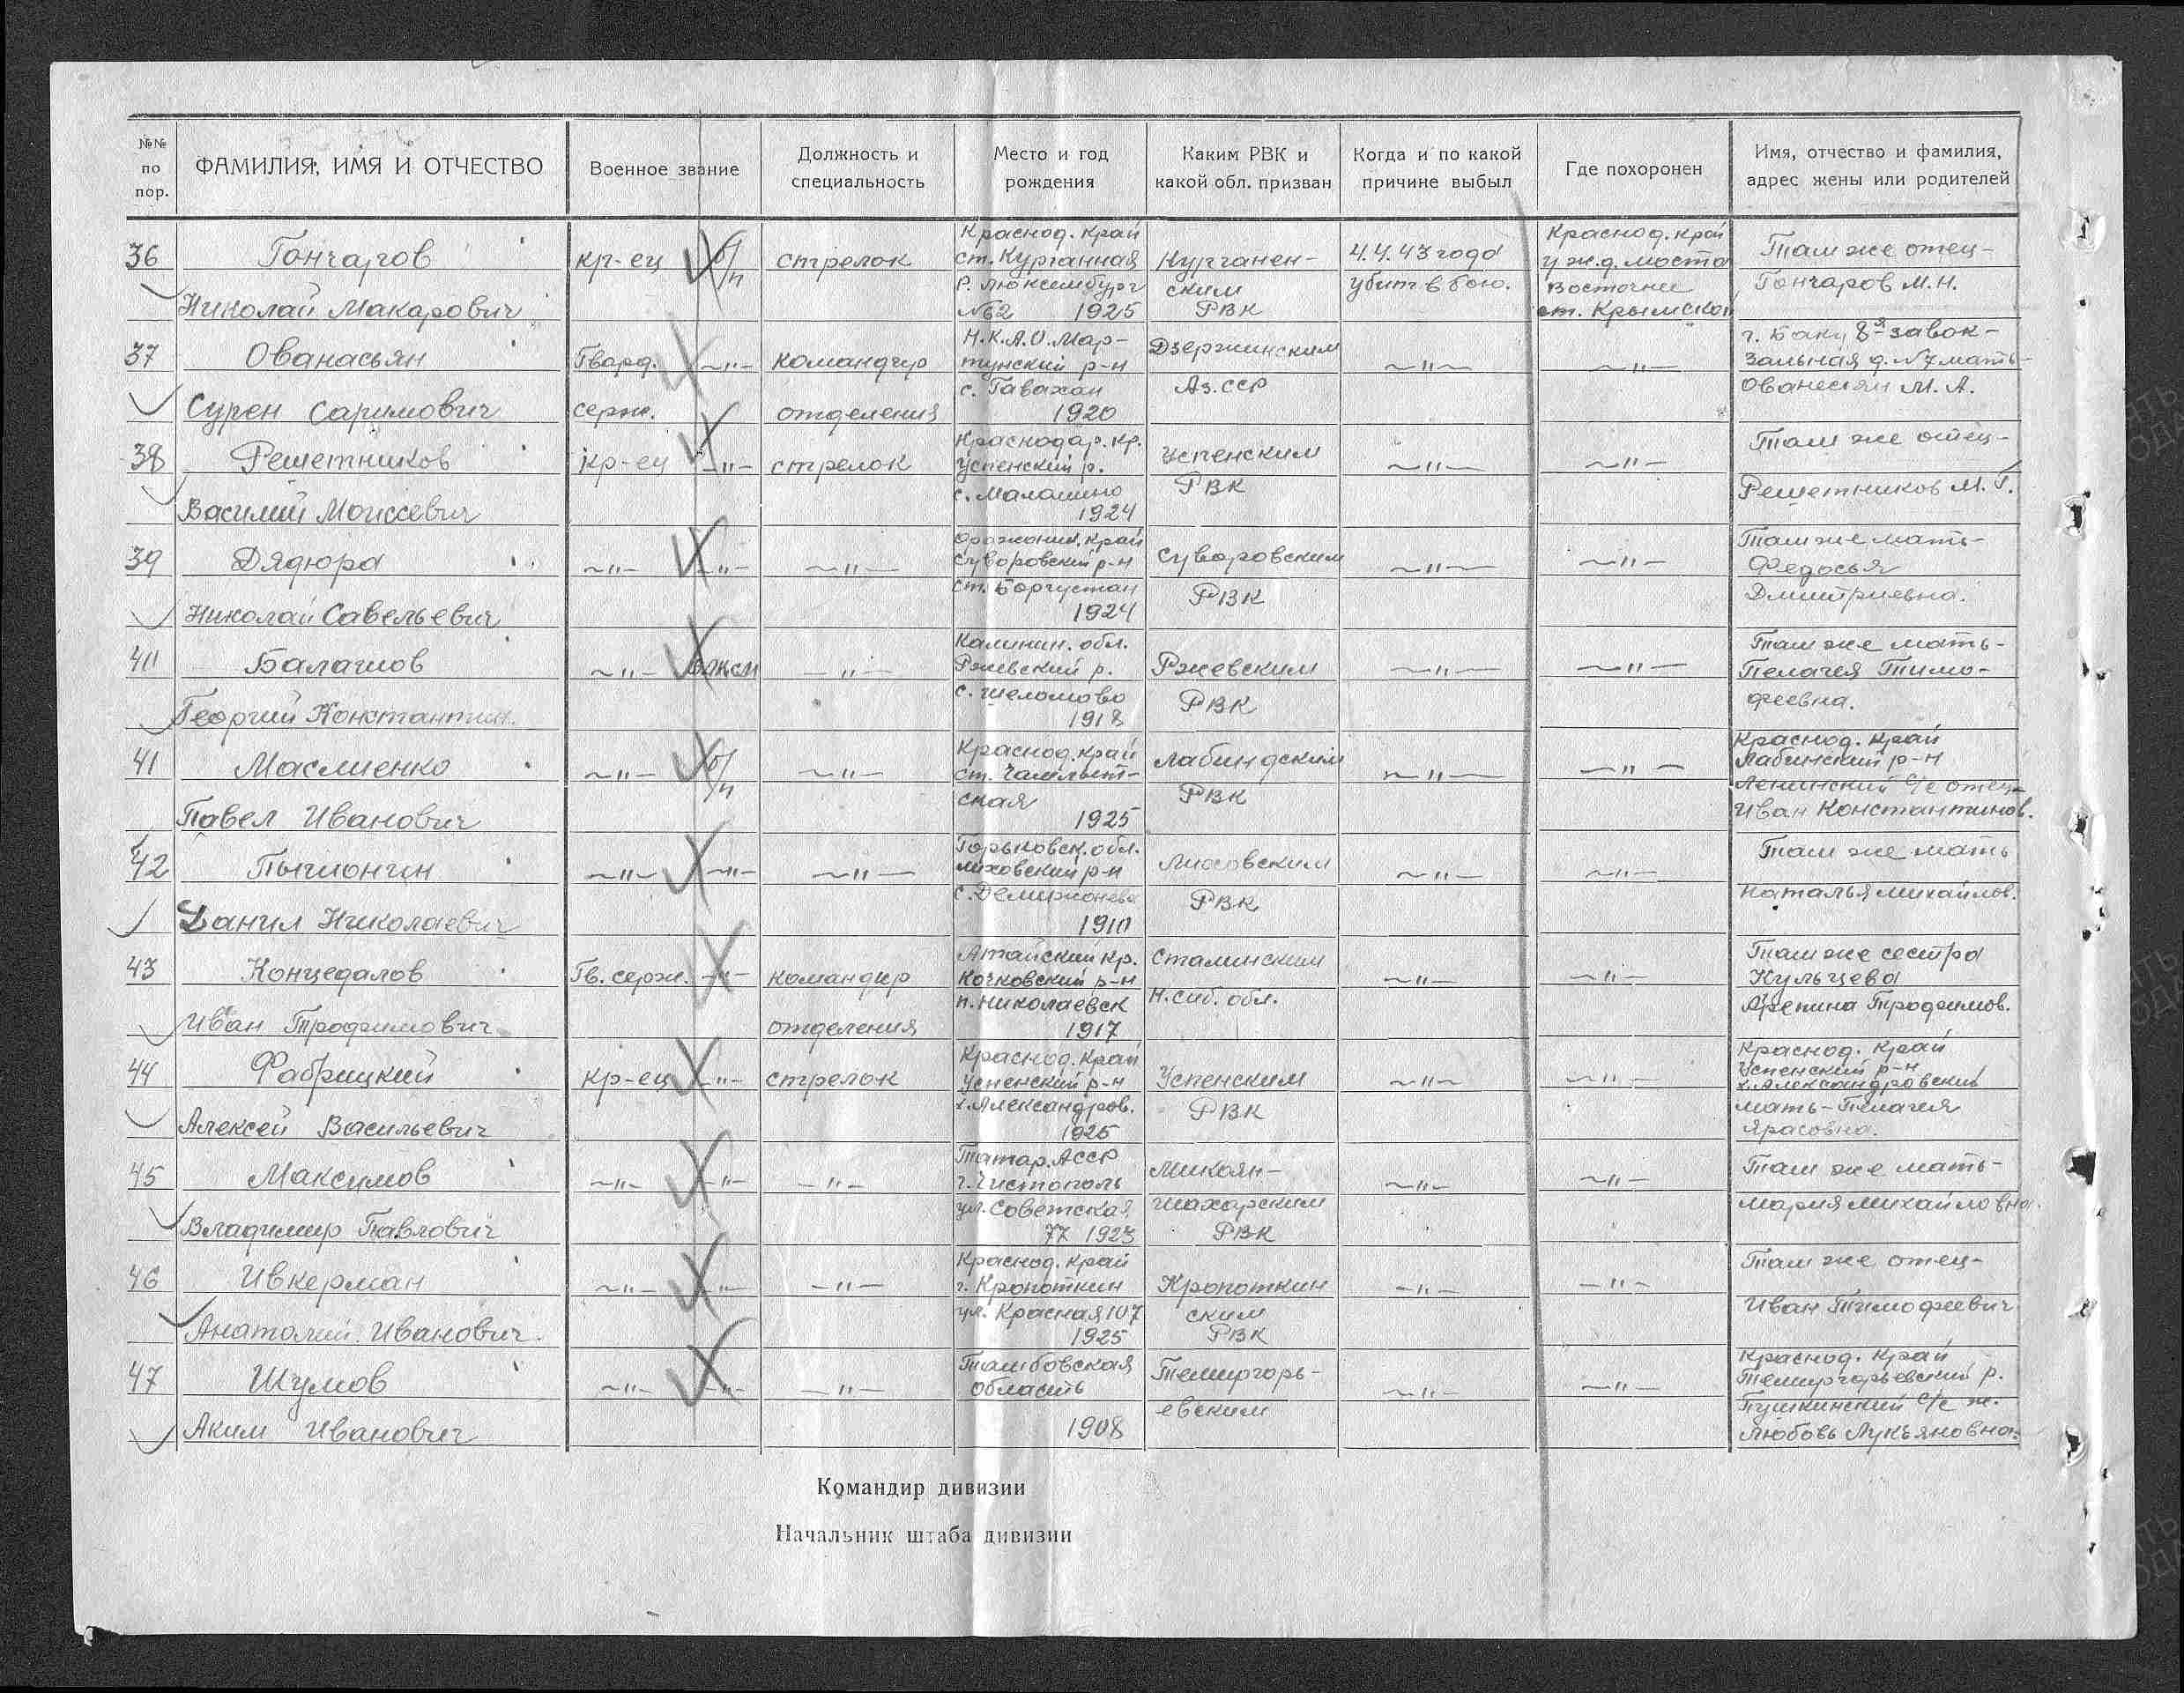 №№ по пор.
ФАМИЛИЯ, ИМЯ И ОТЧЕСТВО
Военное звание
Должность и специальность
Место и год рождения
Каким РВК и какой обл. призван
Когда и по какой причине выбыл
Где похоронен
Имя, отчество и фамилия, адрес жены или родителей
36 Гончаров Николай Макарович
кр-ец б/п
стрелок
Краснод. край ст. Курганная Р. Люксембург №62 1925
Курганенским РВК
4.4.43 года убит в бою.
Краснод. край у ж.д. моста восточнее ст. Крымской
Там же отец- Гончаров М.Н.
37 Ованасьян Сурен Саримович
Гвард. серж. ~"-
командир отделения
Н.К.А.О. Мартунский р-н с. Гавахан 1920
Дзержинским Аз.ССР
~"-
~"-
г. Баку 8я завокзальная д. №7 мать- Ованесян М.А.
38 Решетников Василий Моисеевич
кр-ец -"-
стрелок
Краснодар. кр. Успенский р. с. Маламино 1924
Успенским РВК
~"-
~"-
Там же отец- Решетников М.Г.
39 Дядюра Николай Савельевич
~"- -"-
~"-
край Суворовский р-н ст. Боргустан 1924
Суворовским РВК
~"-
~"-
Там же мать- Федосья Дмитриевна.
40 Балашов Георгий Константин.
~"- ВЛКСМ
-"-
Калинин. обл. Ржевский р. с. Шеломово 1918
Ржевским РВК
~"-
~"-
Там же мать- Пелагея Тимофеевна.
41 Маслиенко Павел Иванович
~"- б/п
~"-
Краснод. край ст. Чамлыкская 1925
Лабиндским РВК
~"-
~"-
Краснод. край Лабинский р-н Ленинский с/с отец- Иван Константинов.
42 Пычионгин Данил Николаевич
~"- ~"-
~"-
Горьковск. обл. Ляховский р-н с. 1910
РВК
~"-
~"-
Там же мать Наталья Михайлов.
43 Концедалов Иван Трофимович
Гв. серж. -"-
командир отделения
Алтайский кр. Кочковский р-н п. Николаевск 1917
Сталинским Н.сиб. обл.
~"-
~"-
Там же сестра Кульцева Трофимов.
44 Фабрицкий Алексей Васильевич
кр-ец -"-
стрелок
Краснод. край Успенский р-н х. Александров. 1925
Успенским РВК
~"-
~"-
Краснод. край Успенский р-н х. Александровский мать-Пелагея
45 Максимов Владимир Павлович
~"- -"-
-"-
Татар. АССР г. Чистополь ул. Советская 77 1923
Микоян-Шахарским РВК
~"-
~"-
Там же мать- Мария Михайловна.
46 Ивкерман Анатолий Иванович.
~"- -"-
-"-
Краснод. край г. Кропоткин ул. Красная 107 1925
Кропоткинским РВК
-"-
-"-
Там же отец- Иван Тимофеевич
47 Шумов Аким Иванович
~"- -"-
-"-
Тамбовская область 1908
Темиргорьевским
~"-
~"-
Краснод. край Темиргорьевский р. Пушкинский с/с ж. Любовь Лукьяновна.
Командир дивизии
Начальник штаба дивизии